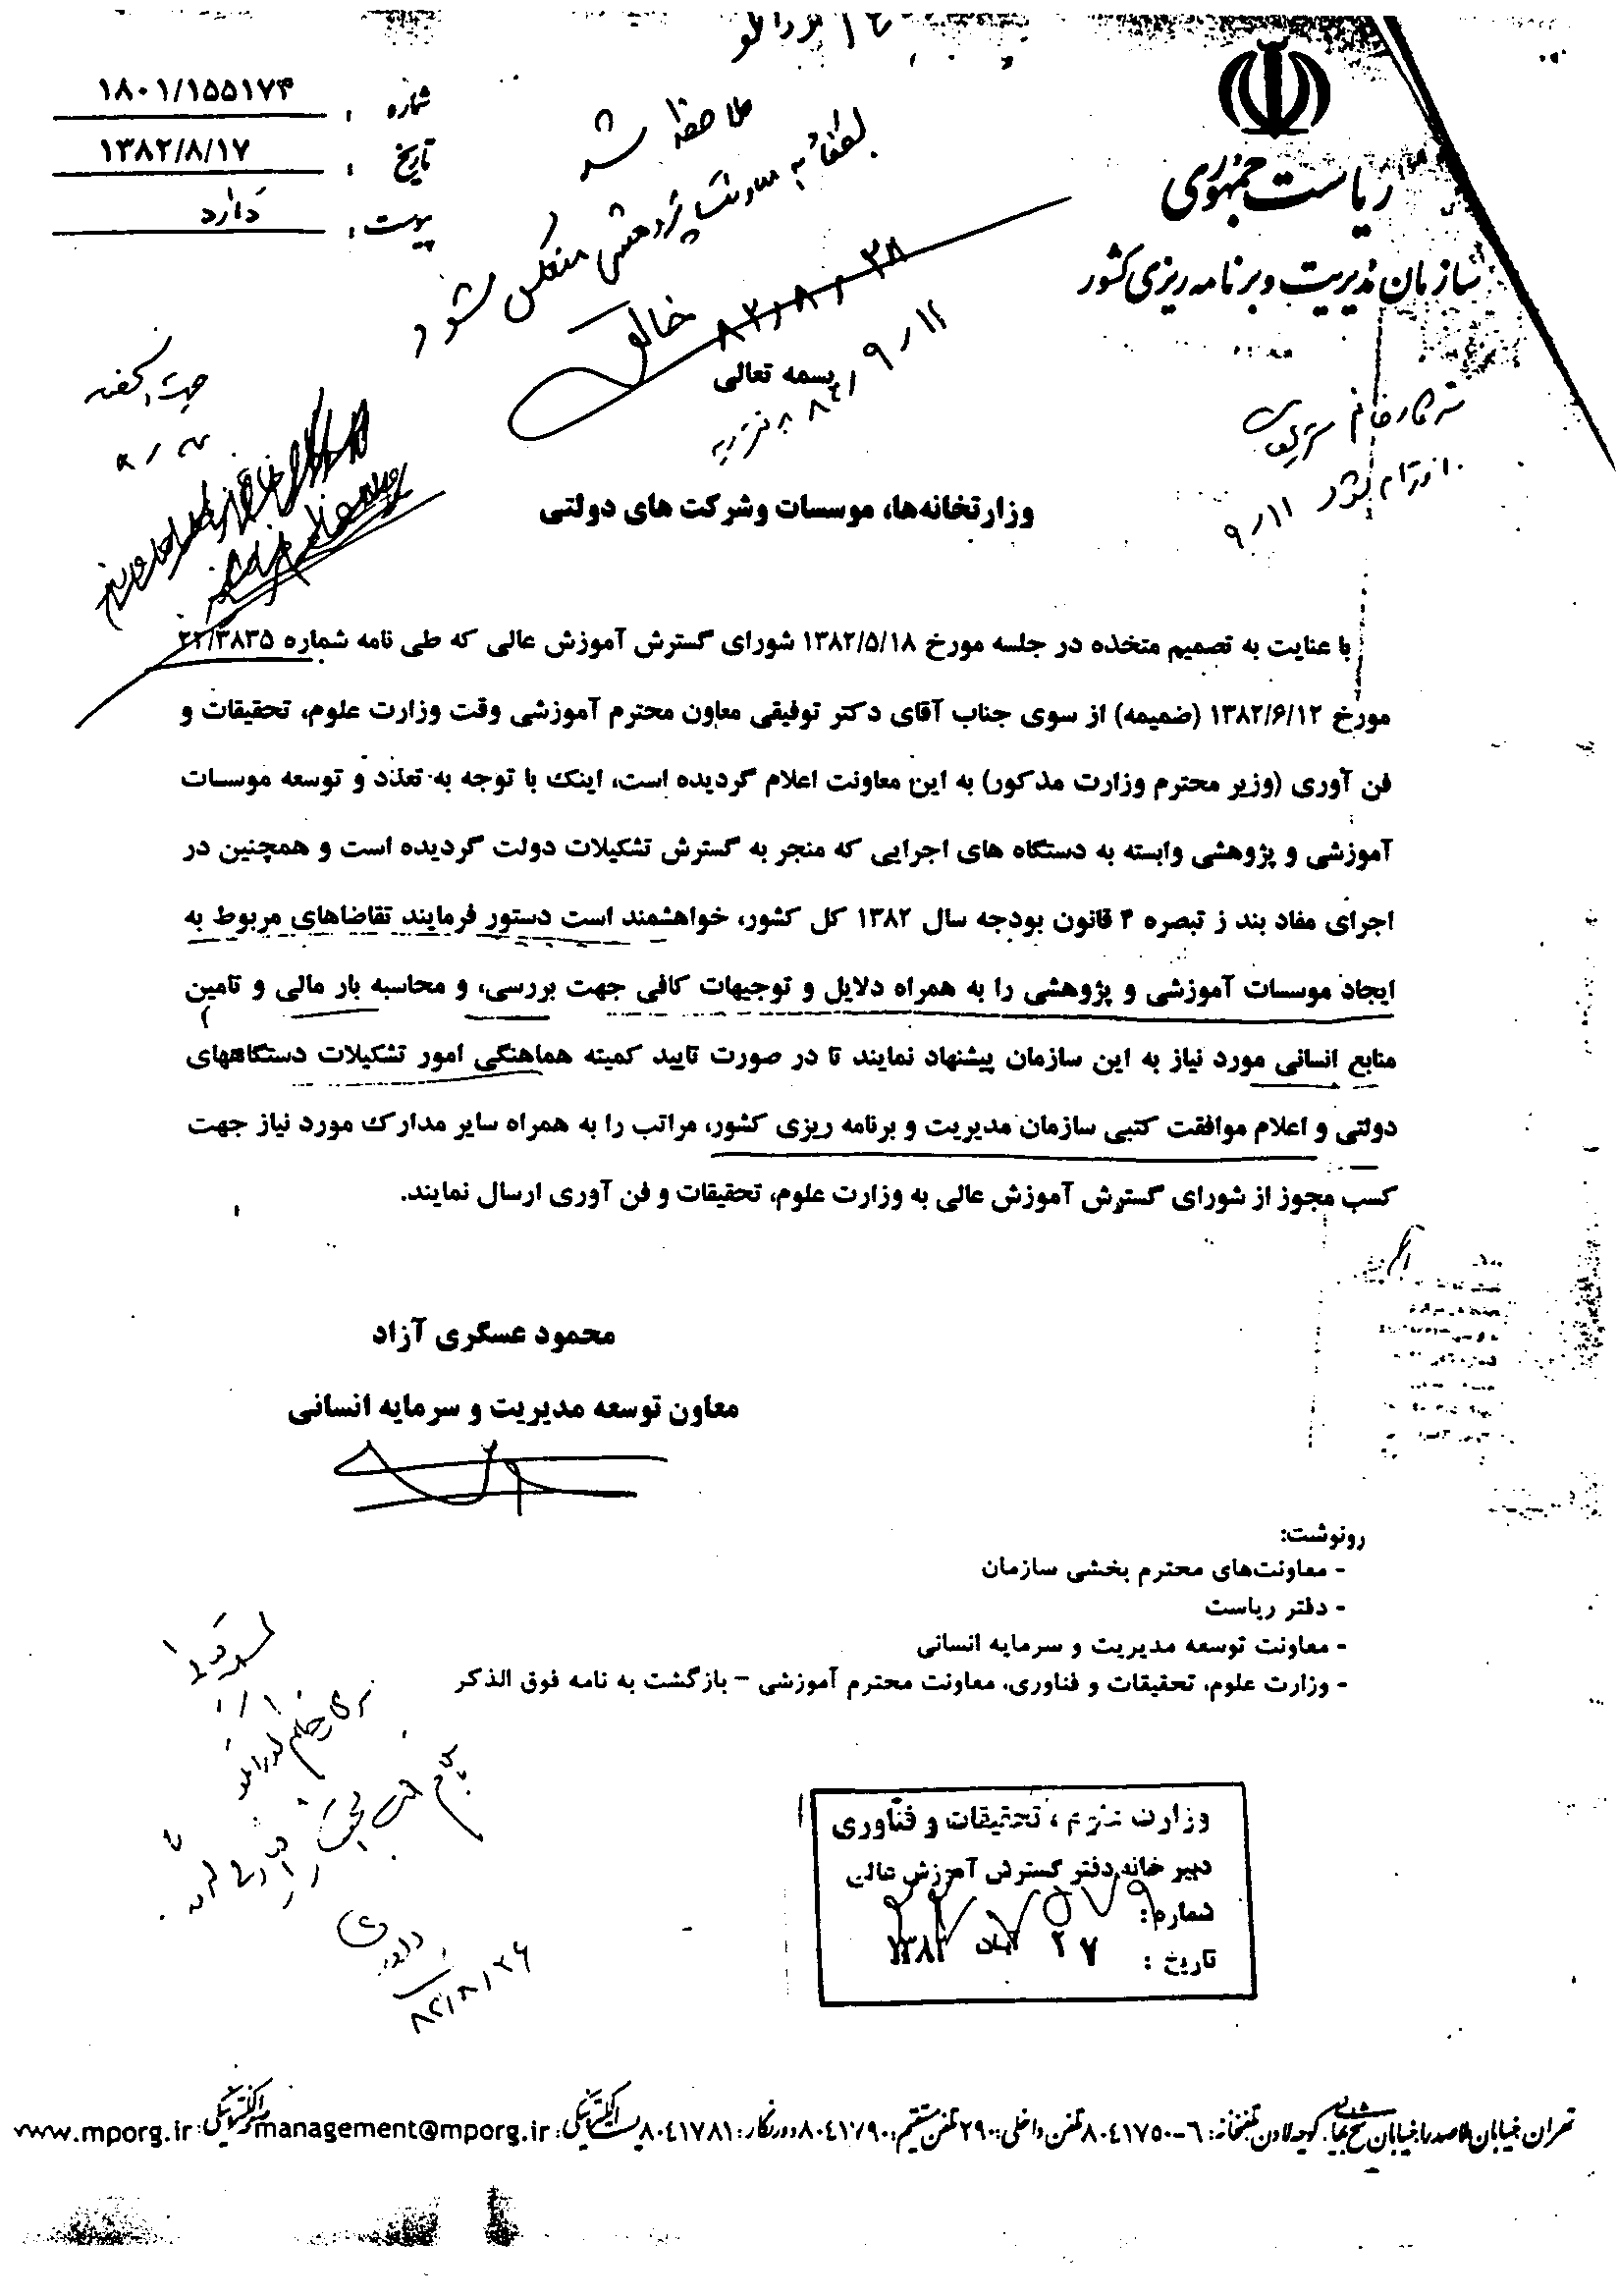 ریاست جمهوری
سازمان مدیریت و برنامه ریزی کشور
شماره : ۱۸۰۱/۱۵۵۱۷۴
تاریخ : ۱۳۸۲/۸/۱۷
پیوست : دارد
ملاحظه شد
لطفا به معاونت پژوهشی منعکس شود
بسمه تعالی
وزارتخانه‌ها، موسسات وشرکت های دولتی
با عنایت به تصمیم متخذه در جلسه مورخ ۱۳۸۲/۵/۱۸ شورای گسترش آموزش عالی که طی نامه شماره ۲۲/۳۸۳۵
مورخ ۱۳۸۲/۶/۱۲ (ضمیمه) از سوی جناب آقای دکتر توفیقی معاون محترم آموزشی وقت وزارت علوم، تحقیقات و
فن آوری (وزیر محترم وزارت مذکور) به این معاونت اعلام گردیده است، اینک با توجه به تعدد و توسعه موسسات
آموزشی و پژوهشی وابسته به دستگاه های اجرایی که منجر به گسترش تشکیلات دولت گردیده است و همچنین در
اجرای مفاد بند ز تبصره ۴ قانون بودجه سال ۱۳۸۲ کل کشور، خواهشمند است دستور فرمایند تقاضاهای مربوط به
ایجاد موسسات آموزشی و پژوهشی را به همراه دلایل و توجیهات کافی جهت بررسی، و محاسبه بار مالی و تامین
منابع انسانی مورد نیاز به این سازمان پیشنهاد نمایند تا در صورت تایید کمیته هماهنگی امور تشکیلات دستگاههای
دولتی و اعلام موافقت کتبی سازمان مدیریت و برنامه ریزی کشور، مراتب را به همراه سایر مدارک مورد نیاز جهت
کسب مجوز از شورای گسترش آموزش عالی به وزارت علوم، تحقیقات و فن آوری ارسال نمایند.
محمود عسگری آزاد
معاون توسعه مدیریت و سرمایه انسانی
رونوشت:
- معاونت‌های محترم بخشی سازمان
- دفتر ریاست
- معاونت توسعه مدیریت و سرمایه انسانی
- وزارت علوم، تحقیقات و فناوری، معاونت محترم آموزشی – بازگشت به نامه فوق الذکر
وزارت علوم ، تحقیقات و فنآوری
دبیر خانه دفتر گسترش آموزش عالی
شماره:
تاریخ : ۲۷ آبان ۱۳۸۲
۸۲/۸/۲۶
تهران، خیابان ملاصدرا، خیابان شیخ بهایی، کوچه لادن تلفنخانه: ۶-۸۰۴۱۷۵۰ تلفن داخلی: ۲۹۰ تلفن مستقیم: ۸۰۴۱۷۹۰ دورنگار: ۸۰۴۱۷۸۱ پست الکترونیکی: management@mporg.ir نشر الکترونیکی: www.mporg.ir